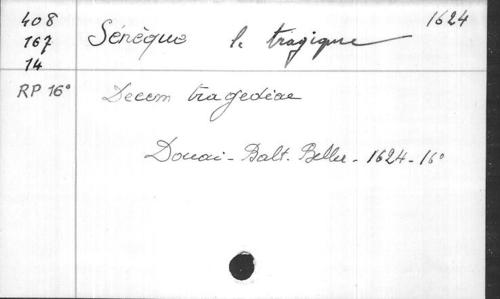 408
167
14
RP 16°
Sénèque le tragique
1624
Decem tragediae
Douai - Balt. Beller - 1624 - 16°